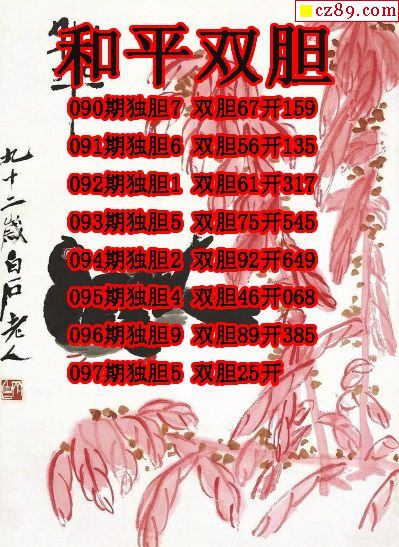 cz89.com
和平双胆
090期独胆7 双胆67开159
091期独胆6 双胆56开135
092期独胆1 双胆61开317
093期独胆5 双胆75开545
094期独胆2 双胆92开649
095期独胆4 双胆46开068
096期独胆9 双胆89开385
097期独胆5 双胆25开
九十二岁白石老人